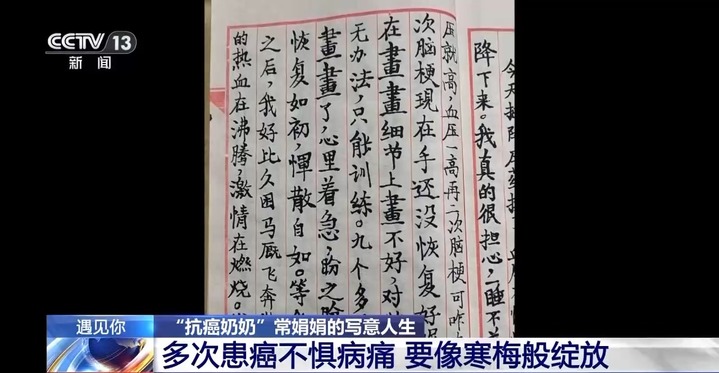 CCTV 13
新闻
今天
降下来。我真的很担心,睡不
压就高,血压一高再二次脑梗可咋
次脑梗现在手还没恢复好
在畫畫细节上畫不好,对
无办法,只能训练。九个多
畫畫了,心里着急,盼之
恢复如初,惮散自如。等
之后,我好比久困马厩飞奔
的热血在沸腾,激情在燃烧。
遇见你
“抗癌奶奶”常娟娟的写意人生
多次患癌不惧病痛 要像寒梅般绽放